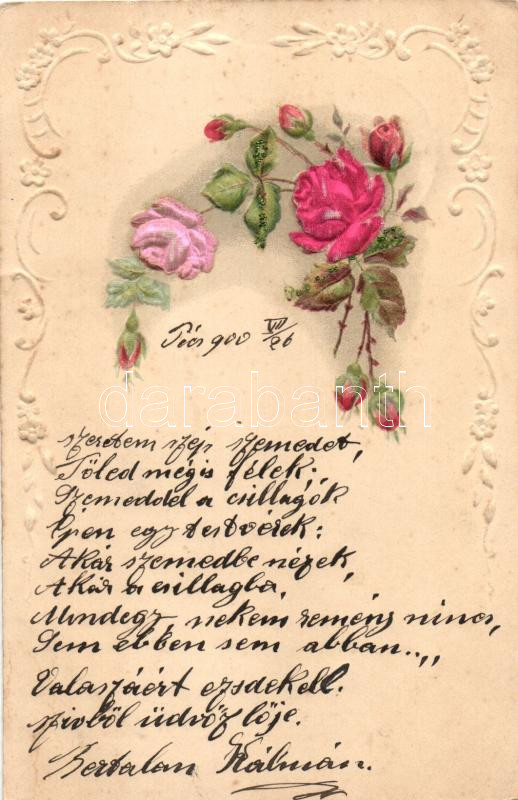 Pécs 900 VII/26
darabanth
szeretem szép szemedet,
Tőled mégis félek;
Szemeddel a csillagok
Épen egy testvérek:
Akár szemedbe nézek,
Akár a csillagba,
Mindegy, nekem remény nincs,
Sem ebben sem abban..,,
Valaszáért ezsdekell.
szivből üdvöz lője.
Bertalan Kálmán.